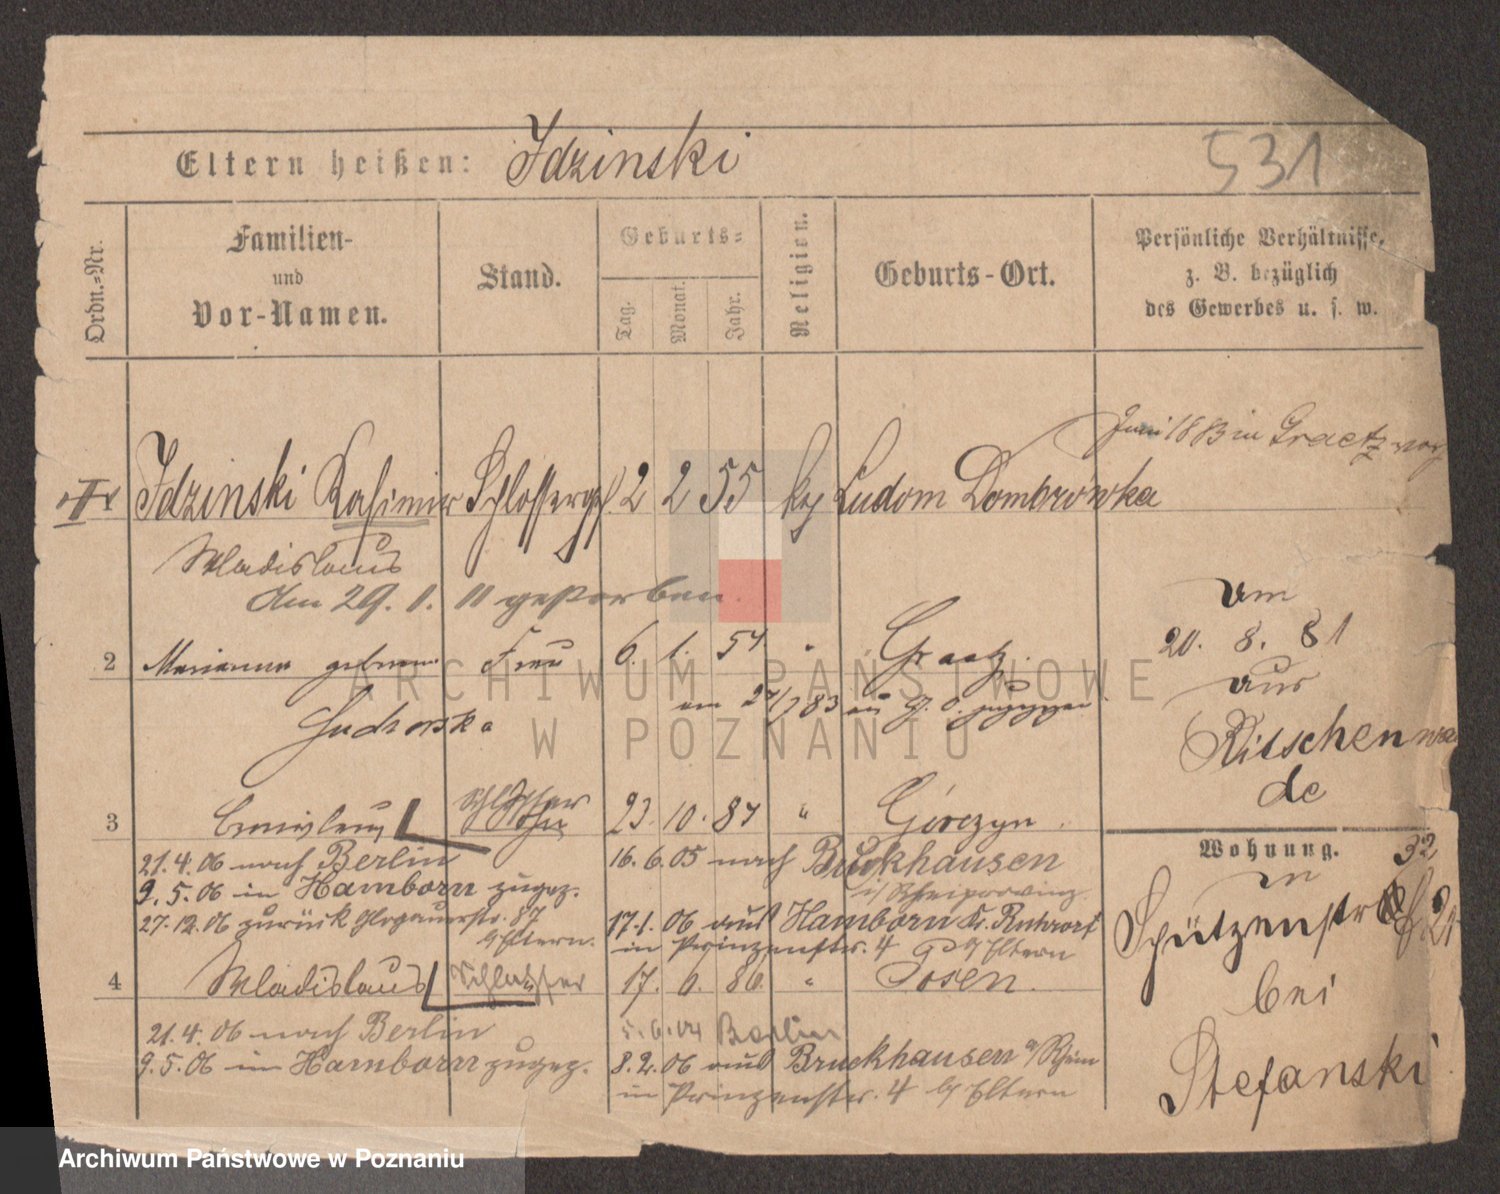 531
Eltern heißen: Idzinski
Ordn.=Nr.
Familien-
und
Vor-Namen.
Stand.
Geburts=
Tag.
Monat.
Jahr.
Religion.
Geburts-Ort.
Persönliche Verhältnisse,
z. B. bezüglich
des Gewerbes u. s. w.
Juni 1883 in Graetz
Idzinski Kasimir Schlosserges. 2 2 55 Ludom Dombrowka
Wladislaus
den 29. 1. 11 gestorben.
am
20. 8. 81
aus
Ritschenwa
de
2 Marianna geborene Frau 6. 1. 54 " Graetz.
am 24/7 83 aus
3 23. 10. 84 " Górczyn.
21.4.06 nach Berlin
9.5.06 in Hamborn zugez.
27.12.06 zurück Glogauerstr. 87
b/Eltern.
16.6.05 nach Bruckhausen
17.1.06 aus Hamborn Kr. Ruhrort
in Prinzenstr. 4 b/Eltern
4 Wladislaus Schlosser 17. 6. 86. " Posen.
21.4.06 nach Berlin
9.5.06 in Hamborn zugez.
Berlin
8.2.06 aus Bruckhausen a/Rhein
in Prinzenstr. 4 b/Eltern
Wohnung.
32,
in
Schützenstr
bei
Stefanski
ARCHIWUM PAŃSTWOWE
W POZNANIU
Archiwum Państwowe w Poznaniu